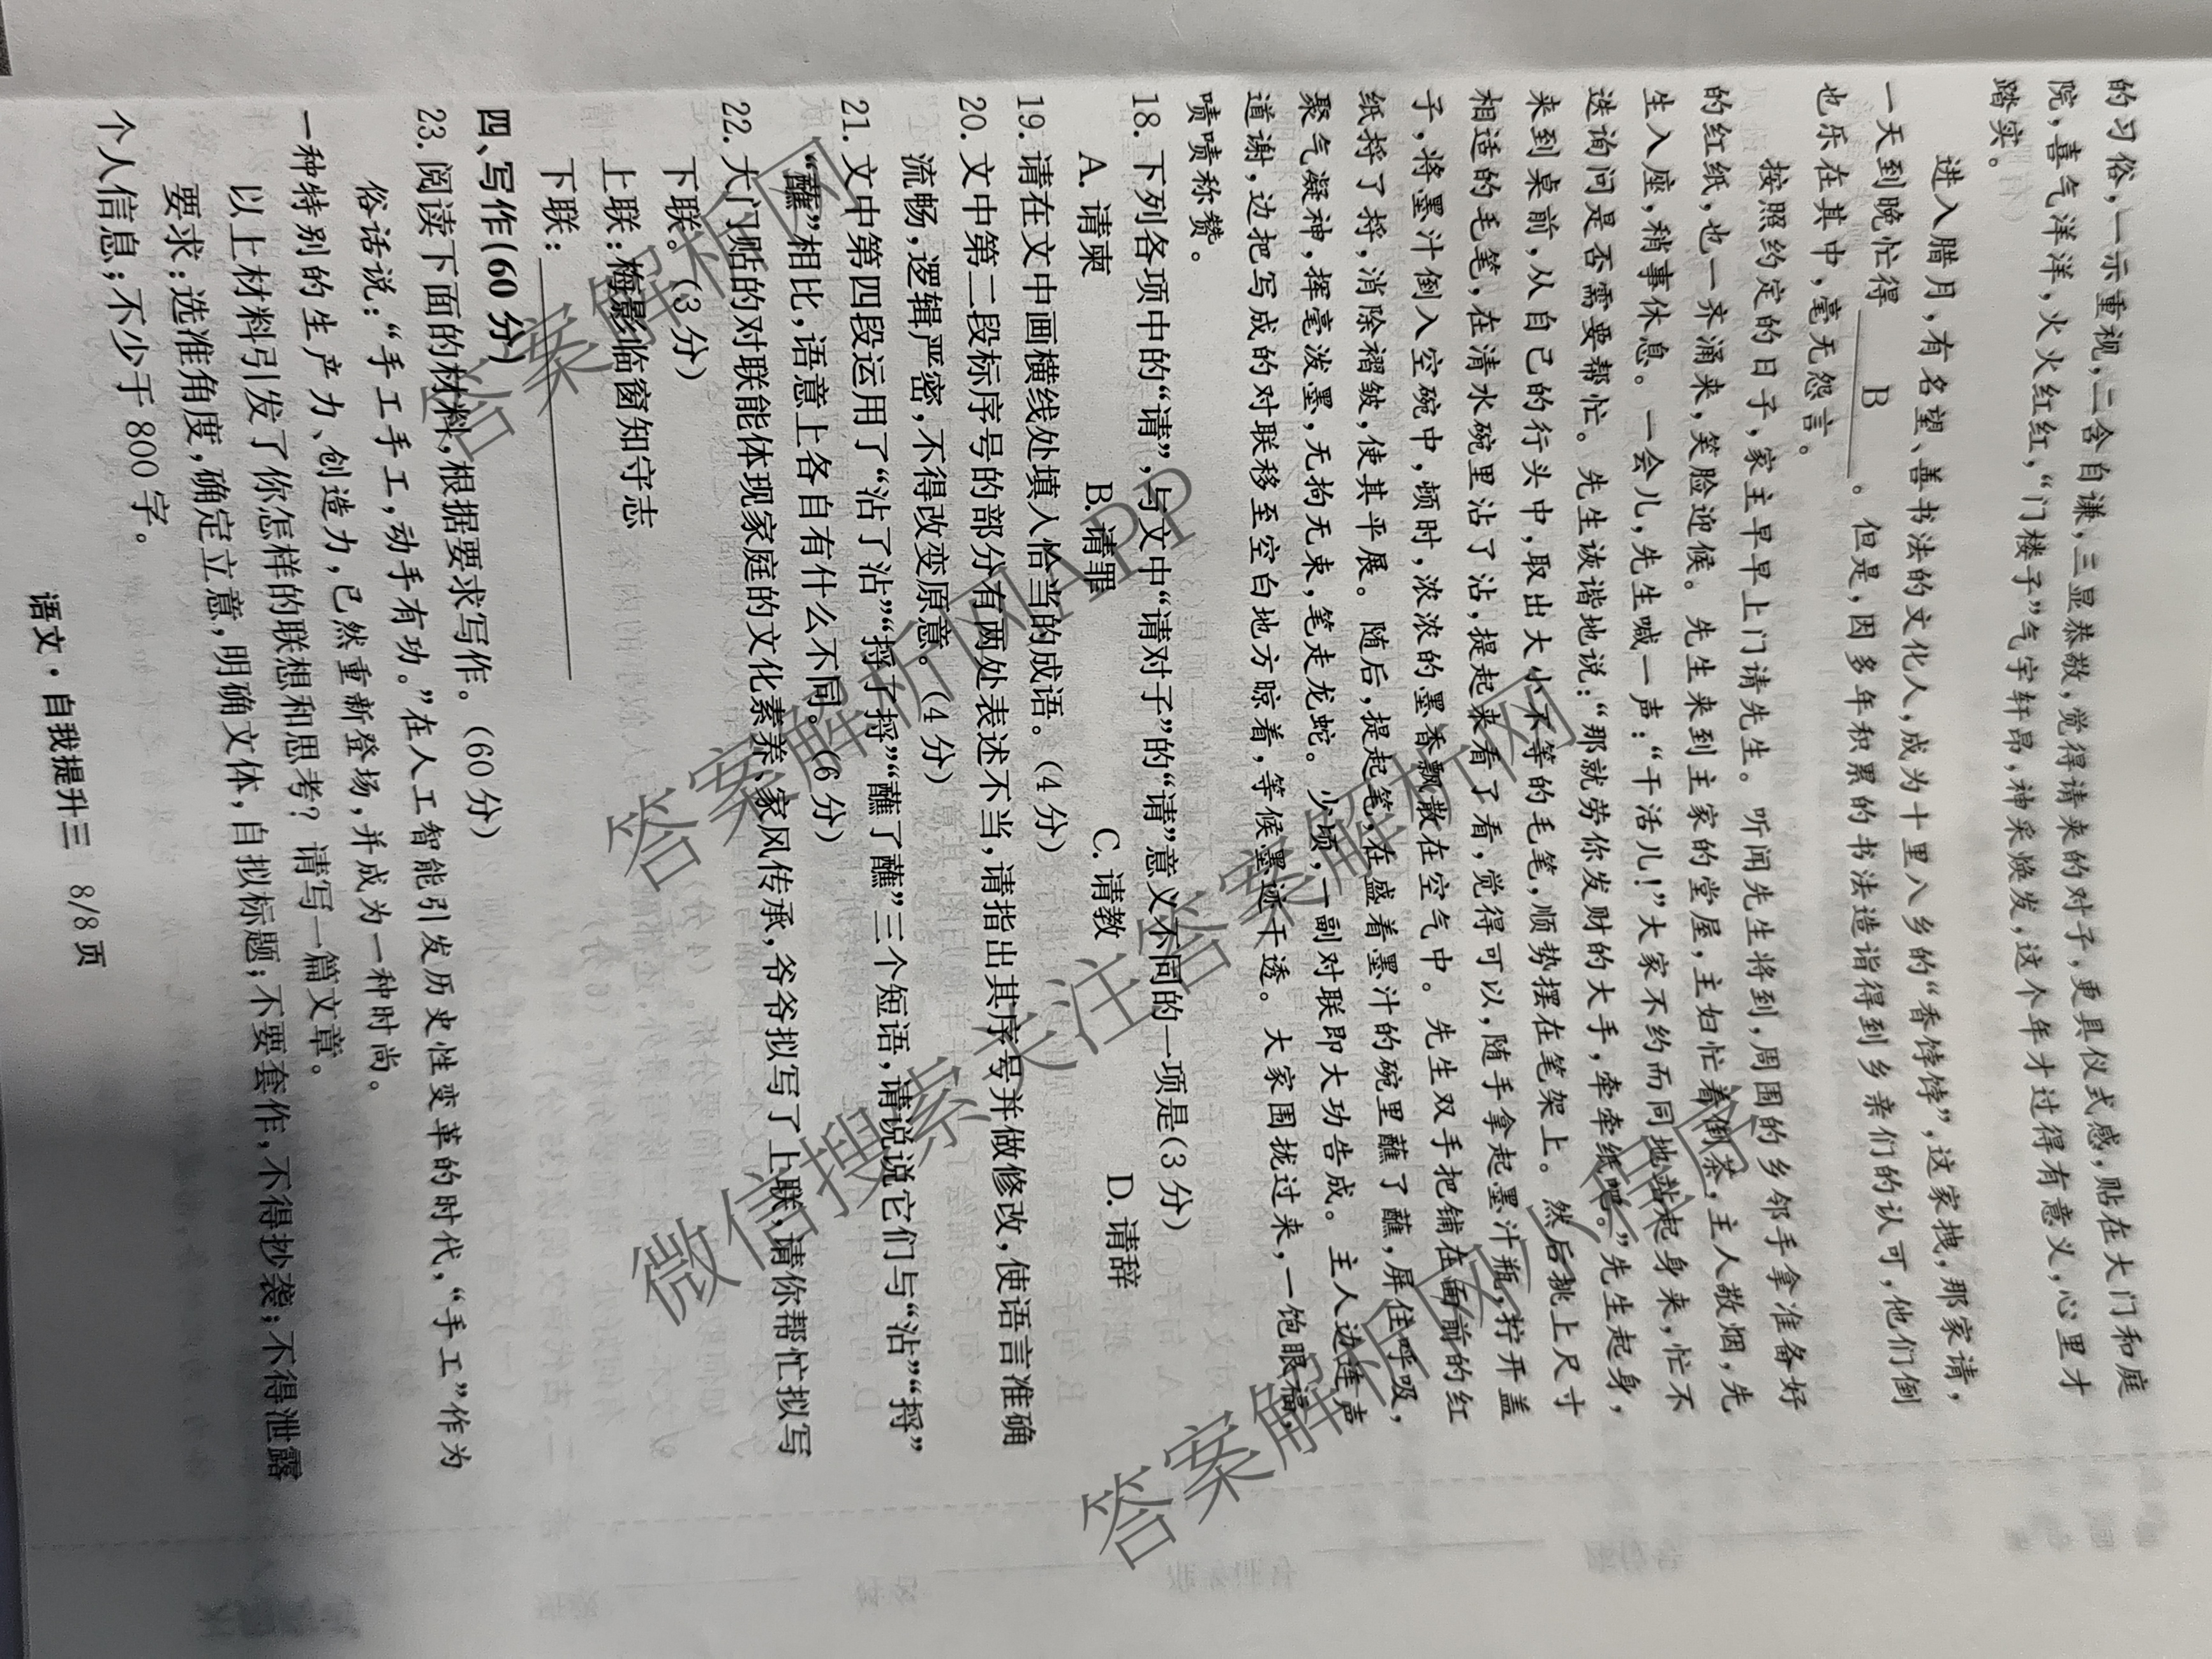 的习俗,一示重视,二含自谦,三显恭敬,觉得请来的对子,更具仪式感,贴在大门和庭
院,喜气洋洋,火火红红,“门楼子”气宇轩昂,神采焕发,这个年才过得有意义,心里才
踏实。
进入腊月,有名望、善书法的文化人,成为十里八乡的“香饽饽”,这家拽,那家请,
一天到晚忙得 B 。但是,因多年积累的书法造诣得到乡亲们的认可,他们倒
也乐在其中,毫无怨言。
按照约定的日子,家主早早上门请先生。听闻先生将到,周围的乡邻手拿准备好
的红纸,也一齐涌来,笑脸迎候。先生来到主家的堂屋,主妇忙着倒茶,主人散烟,先
生入座,稍事休息。一会儿,先生喊一声:“干活儿!”大家不约而同地站起身来,忙不
迭询问是否需要帮忙。先生诙谐地说:“那就劳你发财的大手,牵牵纸吧。”先生起身,
来到桌前,从自己的行头中,取出大小不等的毛笔,顺势摆在笔架上。然后挑上尺寸
相适的毛笔,在清水碗里沾了沾,提起来看了看,觉得可以,随手拿起墨汁瓶,拧开盖
子,将墨汁倒入空碗中,顿时,浓浓的墨香飘散在空气中。先生双手把铺在面前的红
纸捋了捋,消除褶皱,使其平展。随后,提起笔,在盛着墨汁的碗里蘸了蘸,屏住呼吸,
聚气凝神,挥毫泼墨,无拘无束,笔走龙蛇。少顷,一副对联即大功告成。主人边连声
道谢,边把写成的对联移至空白地方晾着,等候墨迹干透。大家围拢过来,一饱眼福,
啧啧称赞。
18. 下列各项中的“请”,与文中“请对子”的“请”意义不同的一项是(3分)
A. 请柬 B. 请罪 C. 请教 D. 请辞
19. 请在文中画横线处填入恰当的成语。(4分)
20. 文中第二段标序号的部分有两处表述不当,请指出其序号并做修改,使语言准确
流畅,逻辑严密,不得改变原意。(4分)
21. 文中第四段运用了“沾了沾”“捋了捋”“蘸了蘸”三个短语,请说说它们与“沾”“捋”
“蘸”相比,语意上各自有什么不同。(6分)
22. 大门贴的对联能体现家庭的文化素养、家风传承,爷爷拟写了上联,请你帮忙拟写
下联。(3分)
上联:梅影临窗知守志
下联:
四、写作(60分)
23. 阅读下面的材料,根据要求写作。(60分)
俗话说:“手工手工,动手有功。”在人工智能引发历史性变革的时代,“手工”作为
一种特别的生产力、创造力,已然重新登场,并成为一种时尚。
以上材料引发了你怎样的联想和思考?请写一篇文章。
要求:选准角度,确定立意,明确文体,自拟标题;不要套作,不得抄袭;不得泄露
个人信息;不少于800字。
语文·自我提升三 8/8页
答案解析网
答案解析网APP
微信搜索关注答案解析网
答案解析网